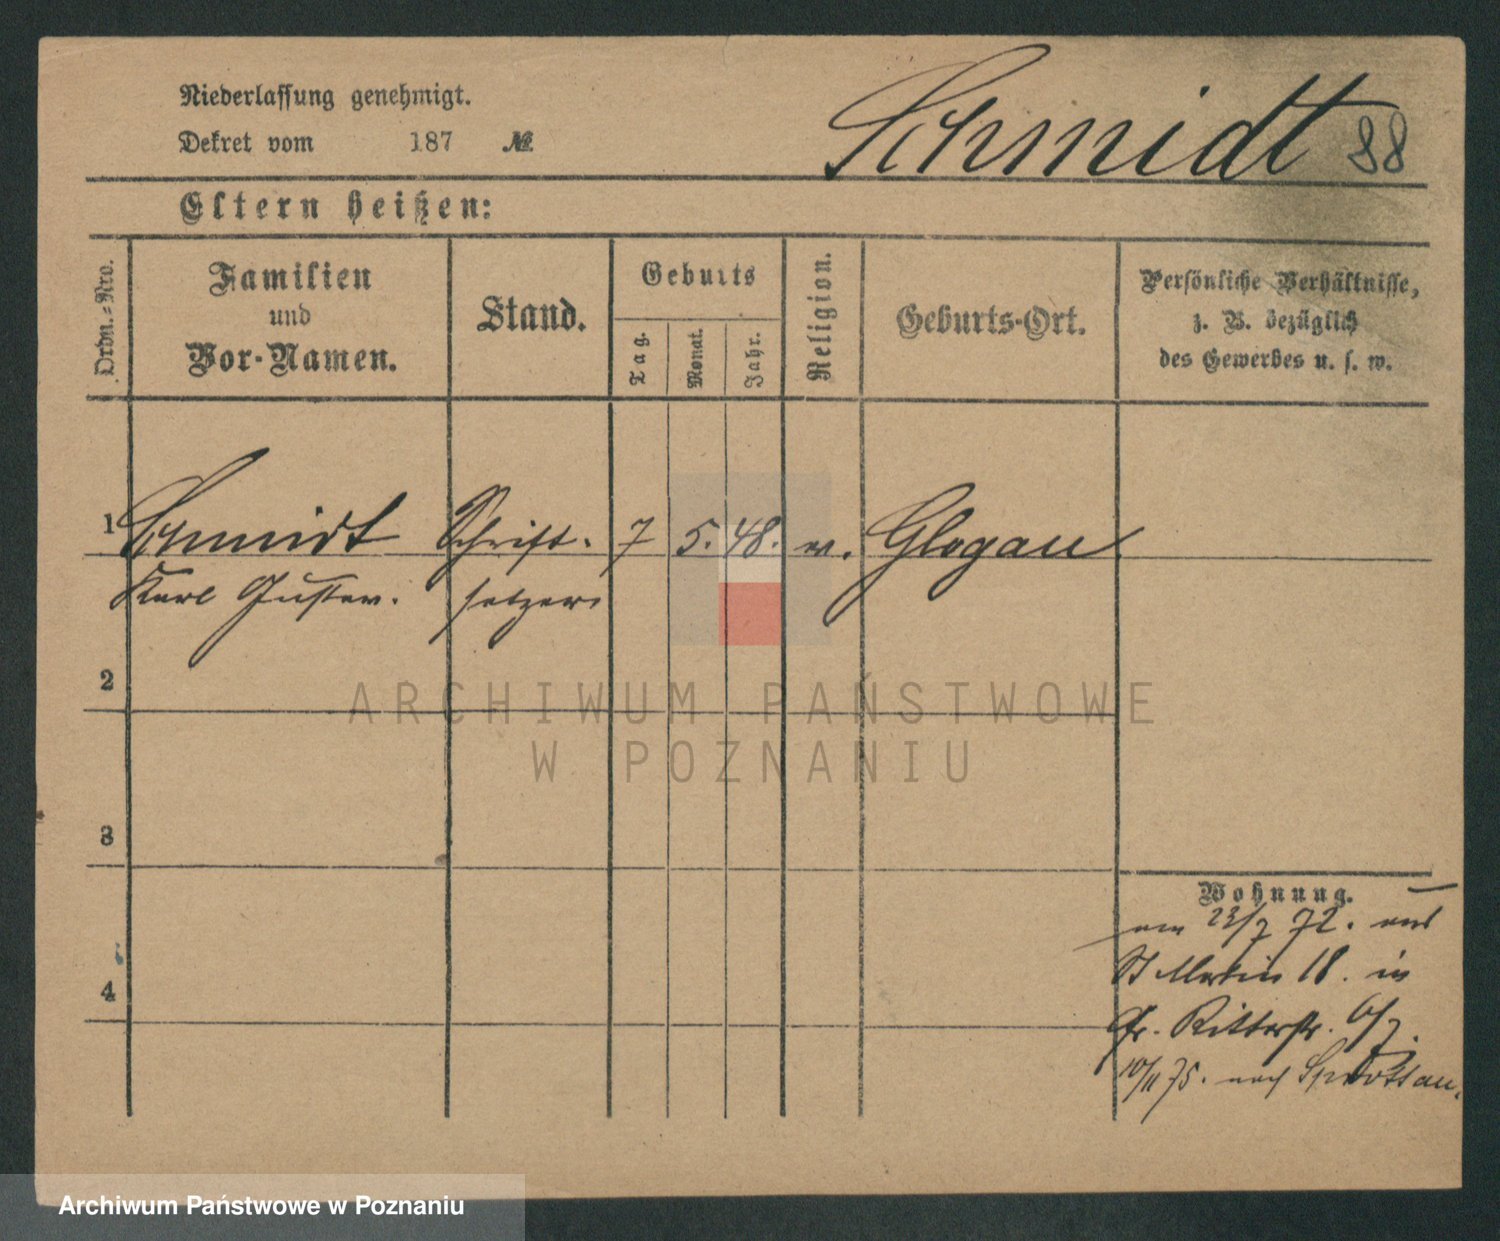 Niederlassung genehmigt.
Dekret vom 187 №
Schmidt 88
Eltern heißen:
Ordn.-Nro.
Familien
und
Vor-Namen.
Stand.
Geburts
Tag.
Monat.
Jahr.
Religion.
Geburts-Ort.
Persönliche Verhältnisse,
z. B. bezüglich
des Gewerbes u. s. w.
1 Schmidt Schrift- 7 5. 48. Glogau
Karl Gustav. setzer
2
ARCHIWUM PAŃSTWOWE
W POZNANIU
3
Wohnung.
23/7 72. aus
St Martin 18. in
Gr. Ritterstr. 6/7.
4
10/11 75. nach Sprottau.
Archiwum Państwowe w Poznaniu